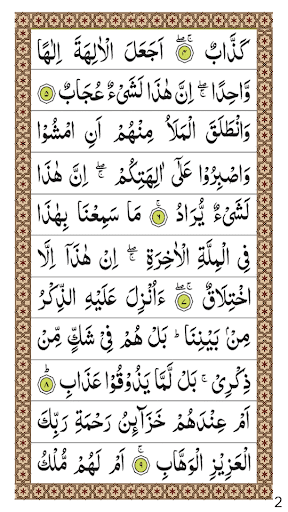 كَذَّابٌ ۖۚ ﴿۴﴾ اَجَعَلَ الْاٰلِهَةَ اِلٰهًا
وَّاحِدًا ۖۚ اِنَّ هٰذَا لَشَیْءٌ عُجَابٌ ﴿۵﴾
وَانْطَلَقَ الْمَلَاُ مِنْهُمْ اَنِ امْشُوْا
وَاصْبِرُوْا عَلٰۤی اٰلِهَتِكُمْ ۖۚ اِنَّ هٰذَا
لَشَیْءٌ یُّرَادُ ۖۚ ﴿۶﴾ مَا سَمِعْنَا بِهٰذَا
فِی الْمِلَّةِ الْاٰخِرَةِ ۖۚ اِنْ هٰذَاۤ اِلَّا
اخْتِلَاقٌ ۖۚ ﴿۷﴾ ءَاُنْزِلَ عَلَیْهِ الذِّكْرُ
مِنْۢ بَیْنِنَا ؕ بَلْ هُمْ فِیْ شَكٍّ مِّنْ
ذِكْرِیْ ۚ بَلْ لَّمَّا یَذُوْقُوْا عَذَابِ ؕ ﴿۸﴾
اَمْ عِنْدَهُمْ خَزَآىِٕنُ رَحْمَةِ رَبِّكَ
الْعَزِیْزِ الْوَهَّابِ ۚ ﴿۹﴾ اَمْ لَهُمْ مُّلْكُ
2